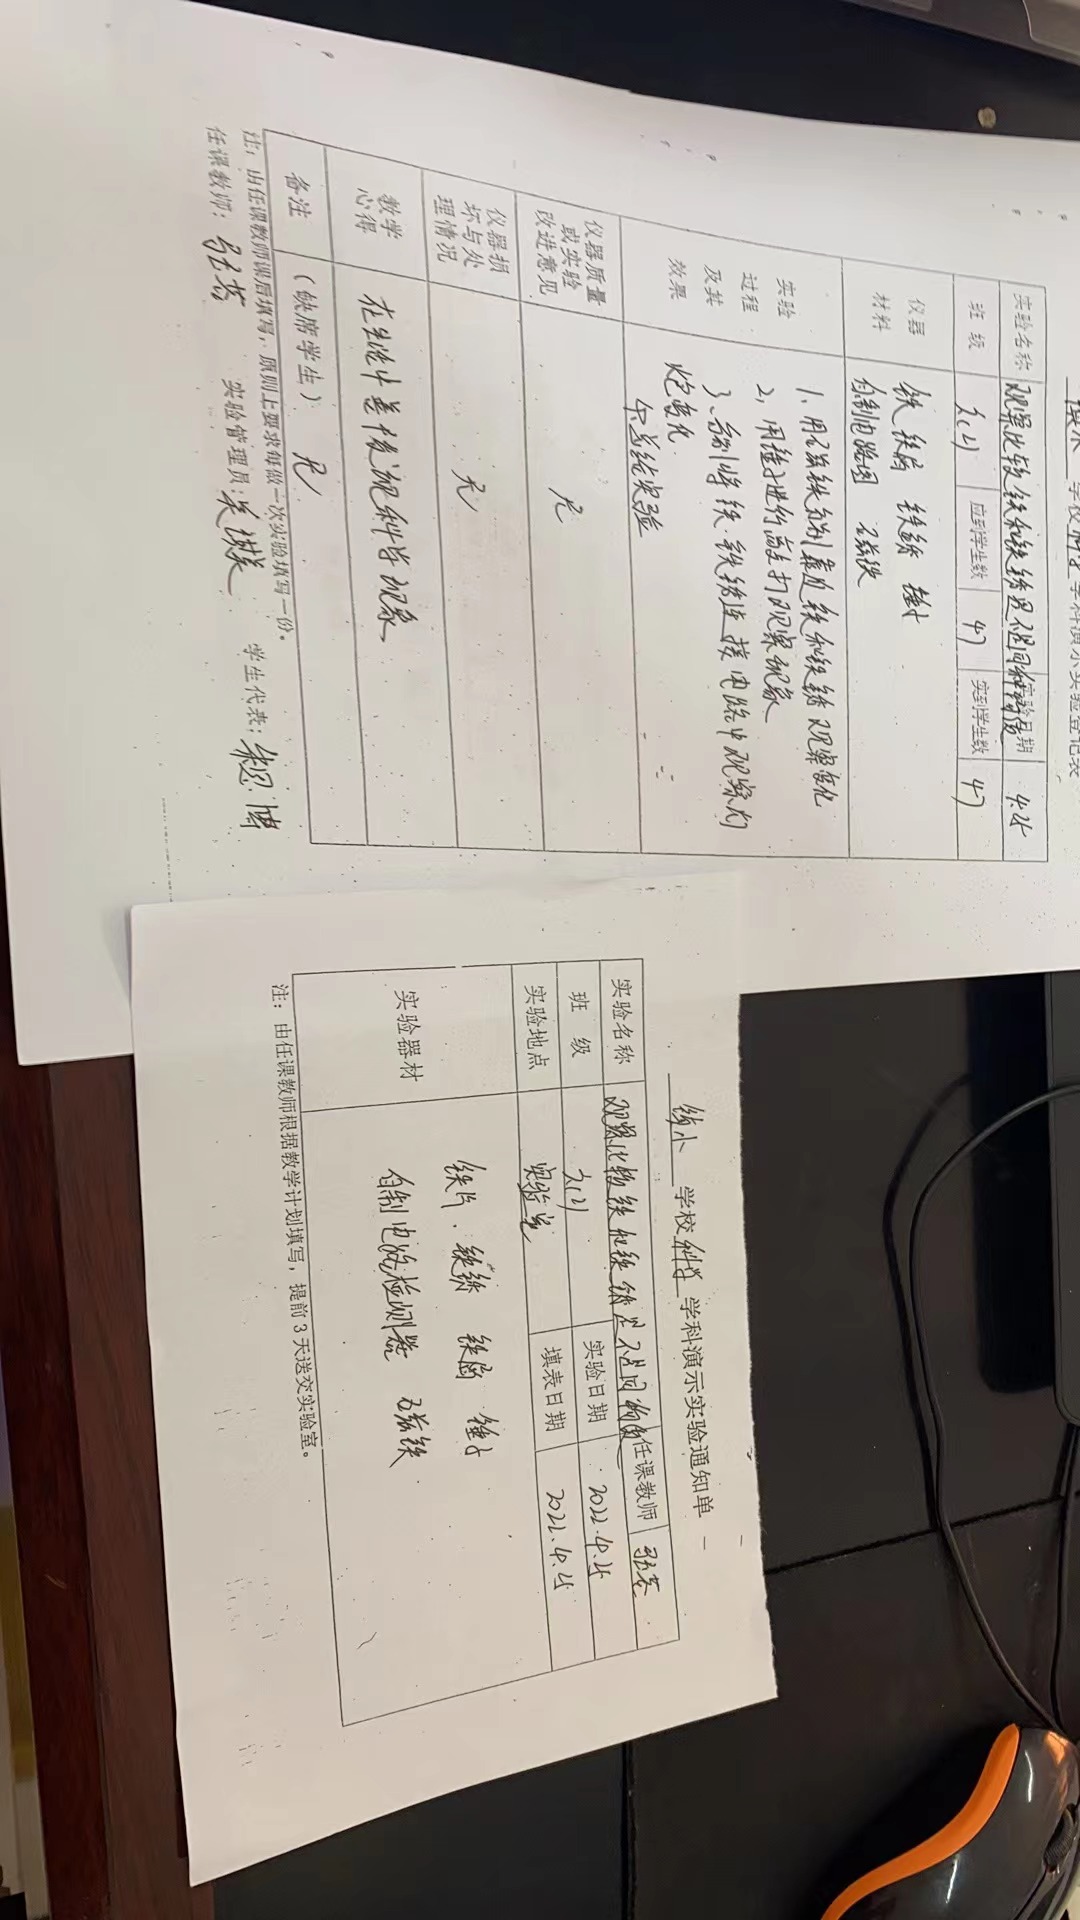 学校科学学科演示实验登记表
实验名称 观察比较铁和铁锈是不是同种物质 实验日期 4.4
班 级 六(2) 应到学生数 47 实到学生数 47
仪器材料 铁 铁锅 铁锈 锤子
自制电路图 磁铁
实验过程及其效果
1、用磁铁分别靠近铁和铁锈观察变化
2、用锤子进行敲打观察现象
3、分别将铁 铁锈连接电路中观察灯
炮变化
仪器质量或实验改进意见 无
仪器损坏与处理情况 无
教学心得 在生活中善于发现科学现象
备注 (缺席学生) 无
注：由任课教师课后填写，原则上要求每做一次实验填写一份。
任课教师： 实验管理员: 学生代表:
学校科学学科演示实验通知单
实验名称 观察比较铁和铁锈是不是同物质 任课教师
班 级 六(2) 实验日期 2022.4.4
实验地点 实验室 填表日期 2022.4.4
实验器材
铁片. 铁锈 铁锅 锤子
自制电路检测器 磁铁
注：由任课教师根据教学计划填写，提前3天送交实验室。